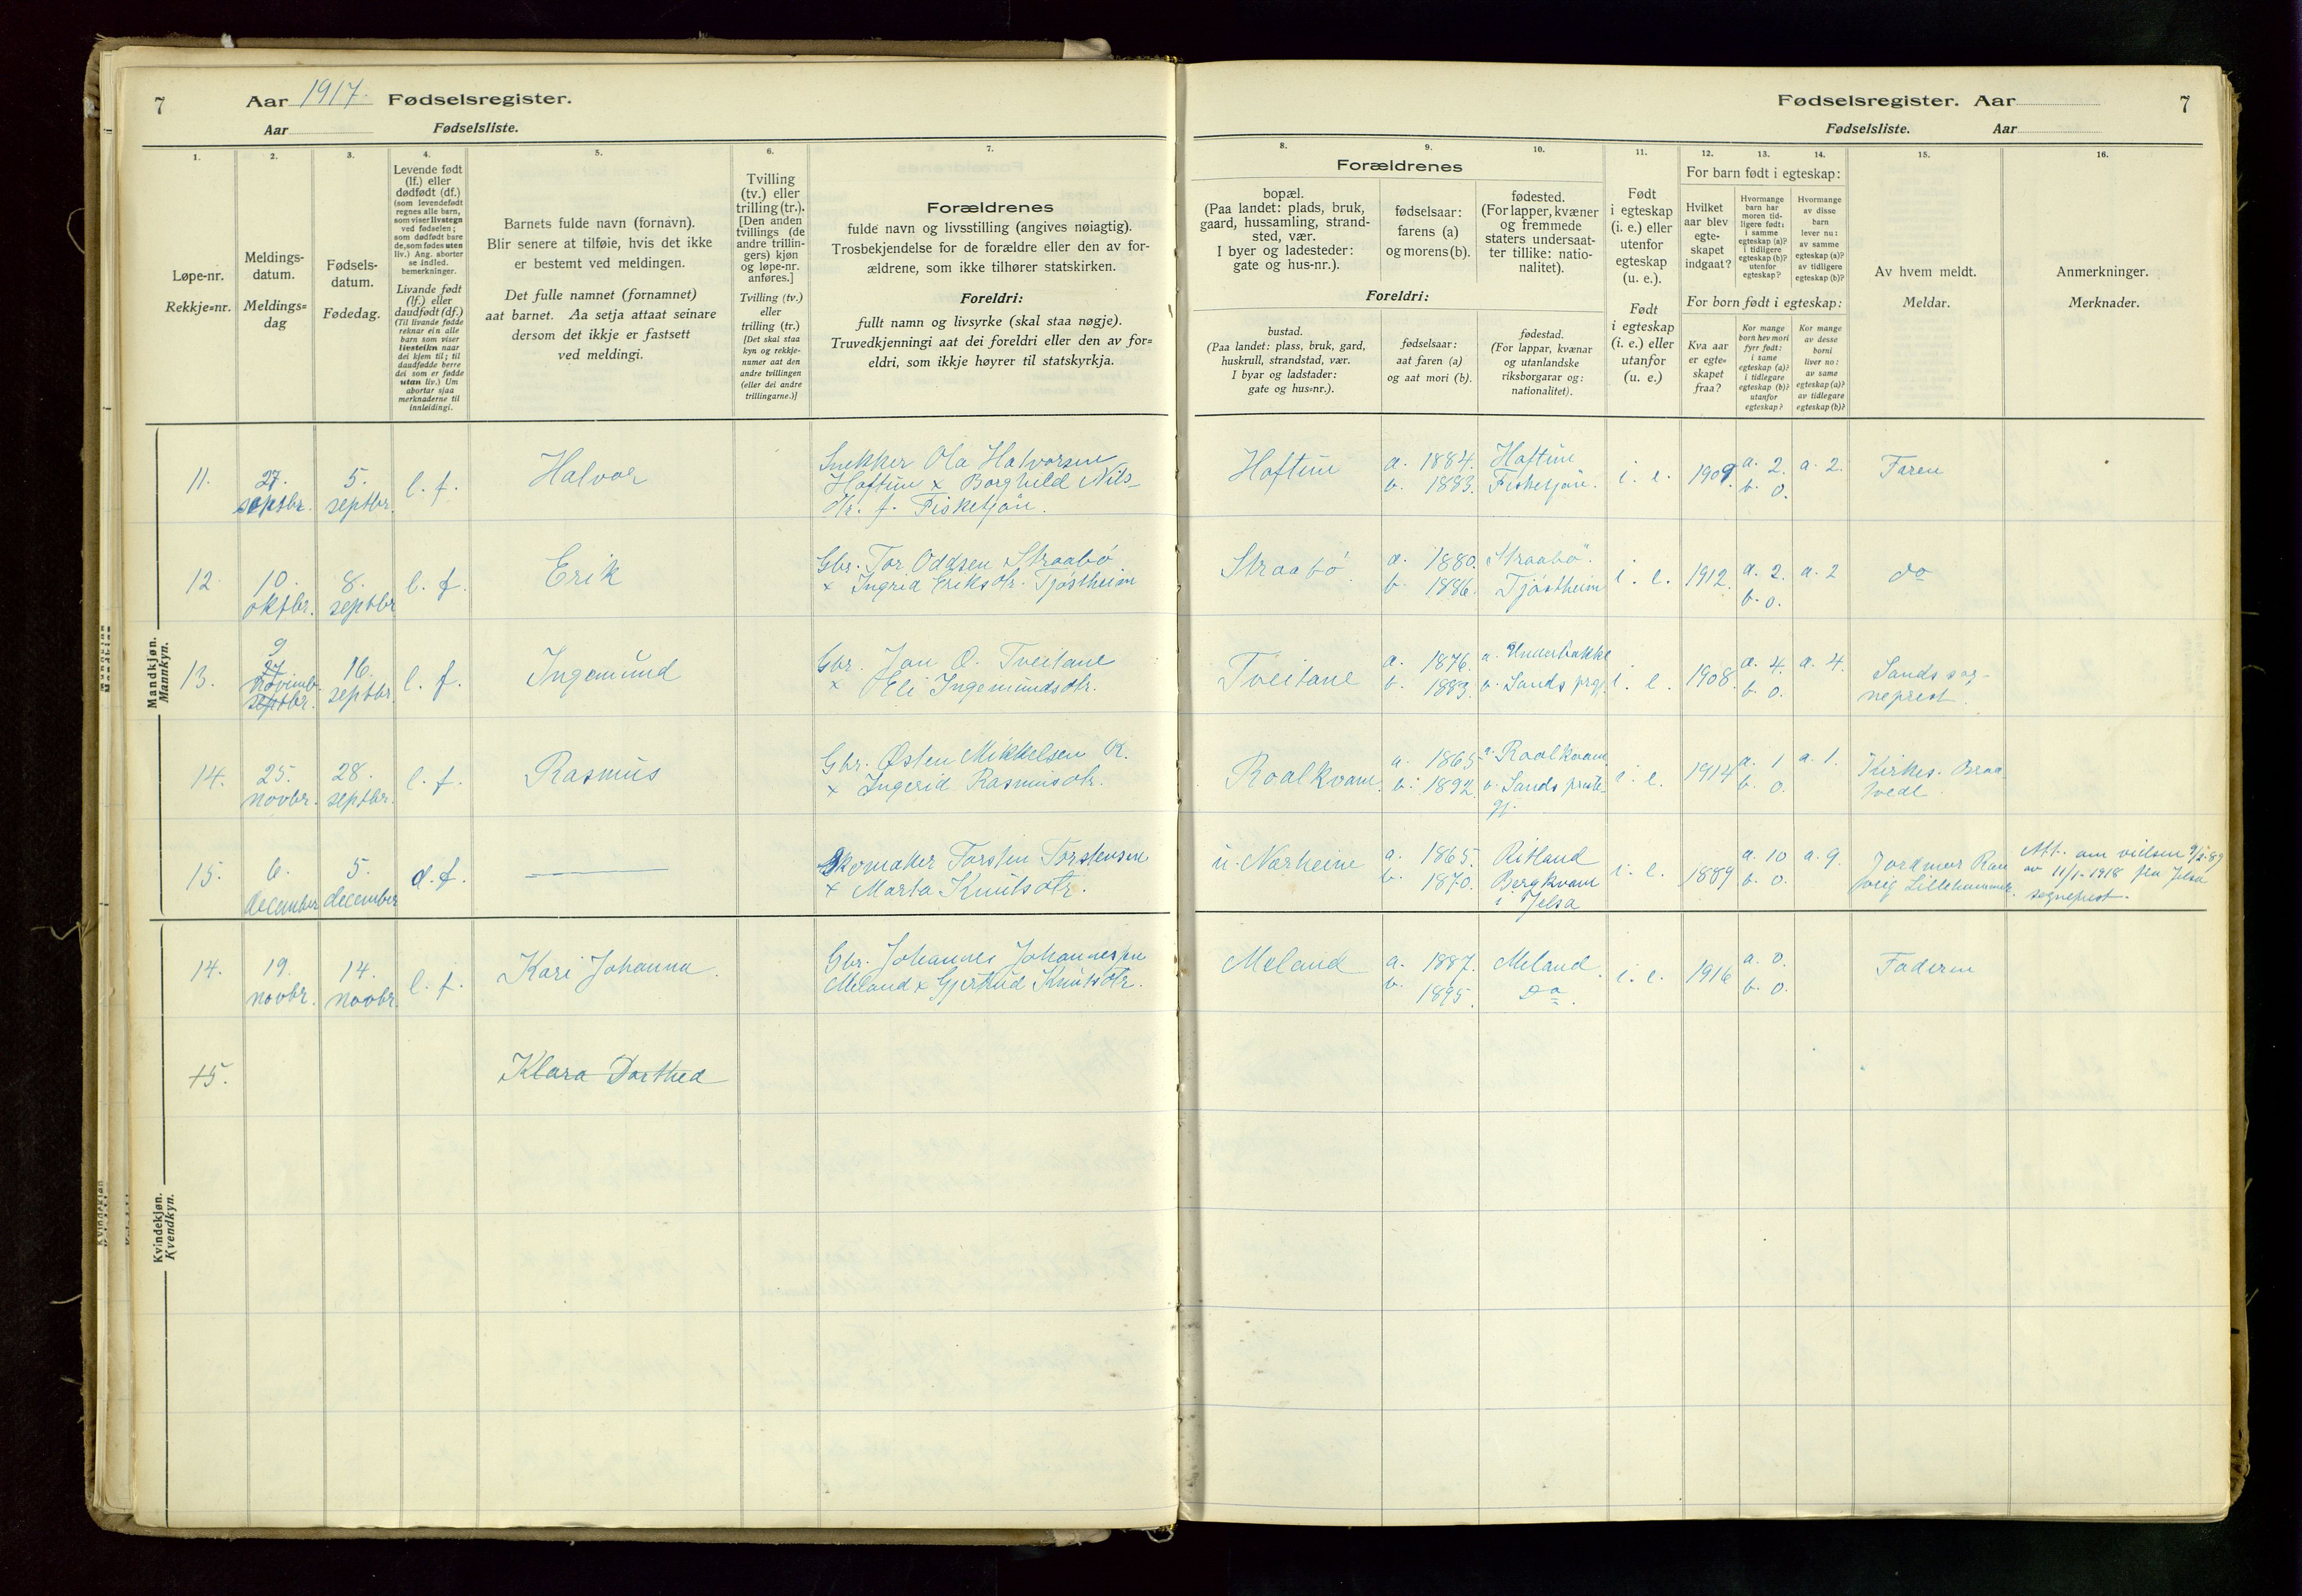 7
Aar 1917. Fødselsregister.
Aar
Fødselsliste.
1.
2.
3.
4.
5.
6.
7.
Løpe-nr.
Rekkje=nr.
Meldings-
datum.
Meldings=
dag
Fødsels-
datum.
Fødedag.
Levende født
(lf.) eller
dødfødt (df.)
(som levendefødt
regnes alle barn,
som viser livstegn
ved fødselen;
som dødfødt bare
de, som fødes uten
liv.) Ang. aborter
se indled.
bemerkninger.
Livande født
(lf.) eller
daudfødt (df.)
(Til livande fødde
reknar ein alle
barn som viser
livsteikn naar
dei kjem til; til
daudfødde berre
dei som er fødde
utan liv.) Um
abortar sjaa
merknaderne til
innleidingi.
Barnets fulde navn (fornavn).
Blir senere at tilføie, hvis det ikke
er bestemt ved meldingen.
Det fulle namnet (fornamnet)
aat barnet. Aa setja attaat seinare
dersom det ikkje er fastsett
ved meldingi.
Tvilling
(tv.) eller
trilling (tr.).
[Den anden
tvillings (de
andre trillin-
gers) kjøn
og løpe-nr.
anføres.]
Tvilling (tv.)
eller
trilling (tr.)
[Det skal staa
kyn og rekkje-
numer aat den
andre tvillingen
(eller dei andre
trillingarne.)]
Forældrenes
fulde navn og livsstilling (angives nøiagtig).
Trosbekjendelse for de forældre eller den av for-
ældrene, som ikke tilhører statskirken.
Foreldri:
fullt namn og livsyrke (skal staa nøgje).
Truvedkjenningi aat dei foreldri eller den av for=
eldri, som ikkje høyrer til statskyrkja.
Mandkjøn.
Mannkyn.
11.
27.
septbr.
5.
septbr.
l. f.
Halvor
Snekker Ola Halvorsen
Haftun x Borghild Nils-
dtr. f. Fisketjön.
12
10.
oktbr.
8.
septbr
l. f.
Erik
Gbr. Tor Oddsen Straabö
x Ingrid Eriksdtr. Tjöstheim
13.
9
27
novemb.
septbr.
16.
septbr.
l. f.
Ingemund
Gbr. Jon O. Tveitane
x Eli Ingemundsdtr.
14.
25.
novbr.
28.
septbr.
l. f.
Rasmus
Gbr. Østen Mikkelsen R.
x Ingerid Rasmusdtr.
15.
6.
december
5.
december
d. f.
Skomaker Torsten Torstensen
x Marta Knutsdtr.
Kvindekjøn.
Kvendkyn.
14.
19.
novbr.
14.
novbr
l. f.
Kari Johanna.
Gbr. Johannes Johannessen
Meland x Gjertrud Knutsdtr.
15.
Klara Dorthea
Fødselsregister. Aar
7
Fødselsliste.
Aar
8.
9.
10.
11.
12.
13.
14.
15.
16.
Forældrenes
bopæl.
(Paa landet: plads, bruk,
gaard, hussamling, strand-
sted, vær.
I byer og ladesteder:
gate og hus-nr.).
fødselsaar:
farens (a)
og morens (b).
fødested.
(For lapper, kvæner
og fremmede
staters undersaat-
ter tillike: natio-
nalitet).
Foreldri:
bustad.
(Paa landet: plass, bruk, gard,
huskrull, strandstad, vær.
I byar og ladstader:
gate og hus=nr.).
fødselsaar:
aat faren (a)
og aat mori (b).
fødestad.
(For lappar, kvænar
og utanlandske
riksborgarar og:
nationalitet).
Født
i egteskap
(i. e.) eller
utenfor
egteskap
(u. e.).
Født
i egteskap
(i. e.) eller
utanfor
(u. e.)
For barn født i egteskap:
Hvilket
aar blev
egte-
skapet
indgaat?
Hvormange
barn har
moren tid-
ligere født:
i samme
egteskap (a)?
i tidligere
egteskap (b)?
utenfor
egteskap?
Hvormange
av disse
barn
lever nu:
av samme
egteskap (a)?
av tidligere
egteskap (b)?
For born født i egteskap:
Kva aar
er egte=
skapet
fraa?
Kor mange
born hev mori
fyrr født:
i same
egteskap (a)?
i tidlegare
egteskap (b)?
utanfor
egteskap?
Kor mange
av desse
borni
liver no:
av same
egteskap (a)?
av tidlegare
egteskap (b)?
Av hvem meldt.
Meldar.
Anmerkninger.
Merknader.
Haftun
a. 1884.
b. 1883.
Haftun
Fisketjön.
i. e.
1909.
a. 2.
b. 0.
a. 2.
Faren
Straabö
a. 1880.
b. 1886.
Straabö
Tjöstheim
i. e.
1912.
a. 2.
b. 0.
a. 2
do
Tveitane
a. 1876.
b. 1883.
a. Underbakke
b. Sands prgj.
i. e.
1908.
a. 4.
b. 0.
a. 4.
Sands sog-
neprest.
Roalkvam.
a. 1865
b. 1892.
a. Roalkvam
b. Sands preste-
gj.
i. e.
1914
a. 1
b. 0.
a. 1.
Kirkes. Braa
tvedt
u. Nærheim
a. 1865.
b. 1870.
Ritland
Bergkvam
i Jelsa
i. e.
1889
a. 10
b. 0.
a. 9.
Jordmor Ran
veig Lillehammer.
Att. om vielsen 9/5-89
av 11/1-1918 fra Jelsa
sogneprest.
Meland
a. 1887.
b. 1895.
Meland.
Do.
i. e.
1916
a. 0.
b. 0.
Faderen